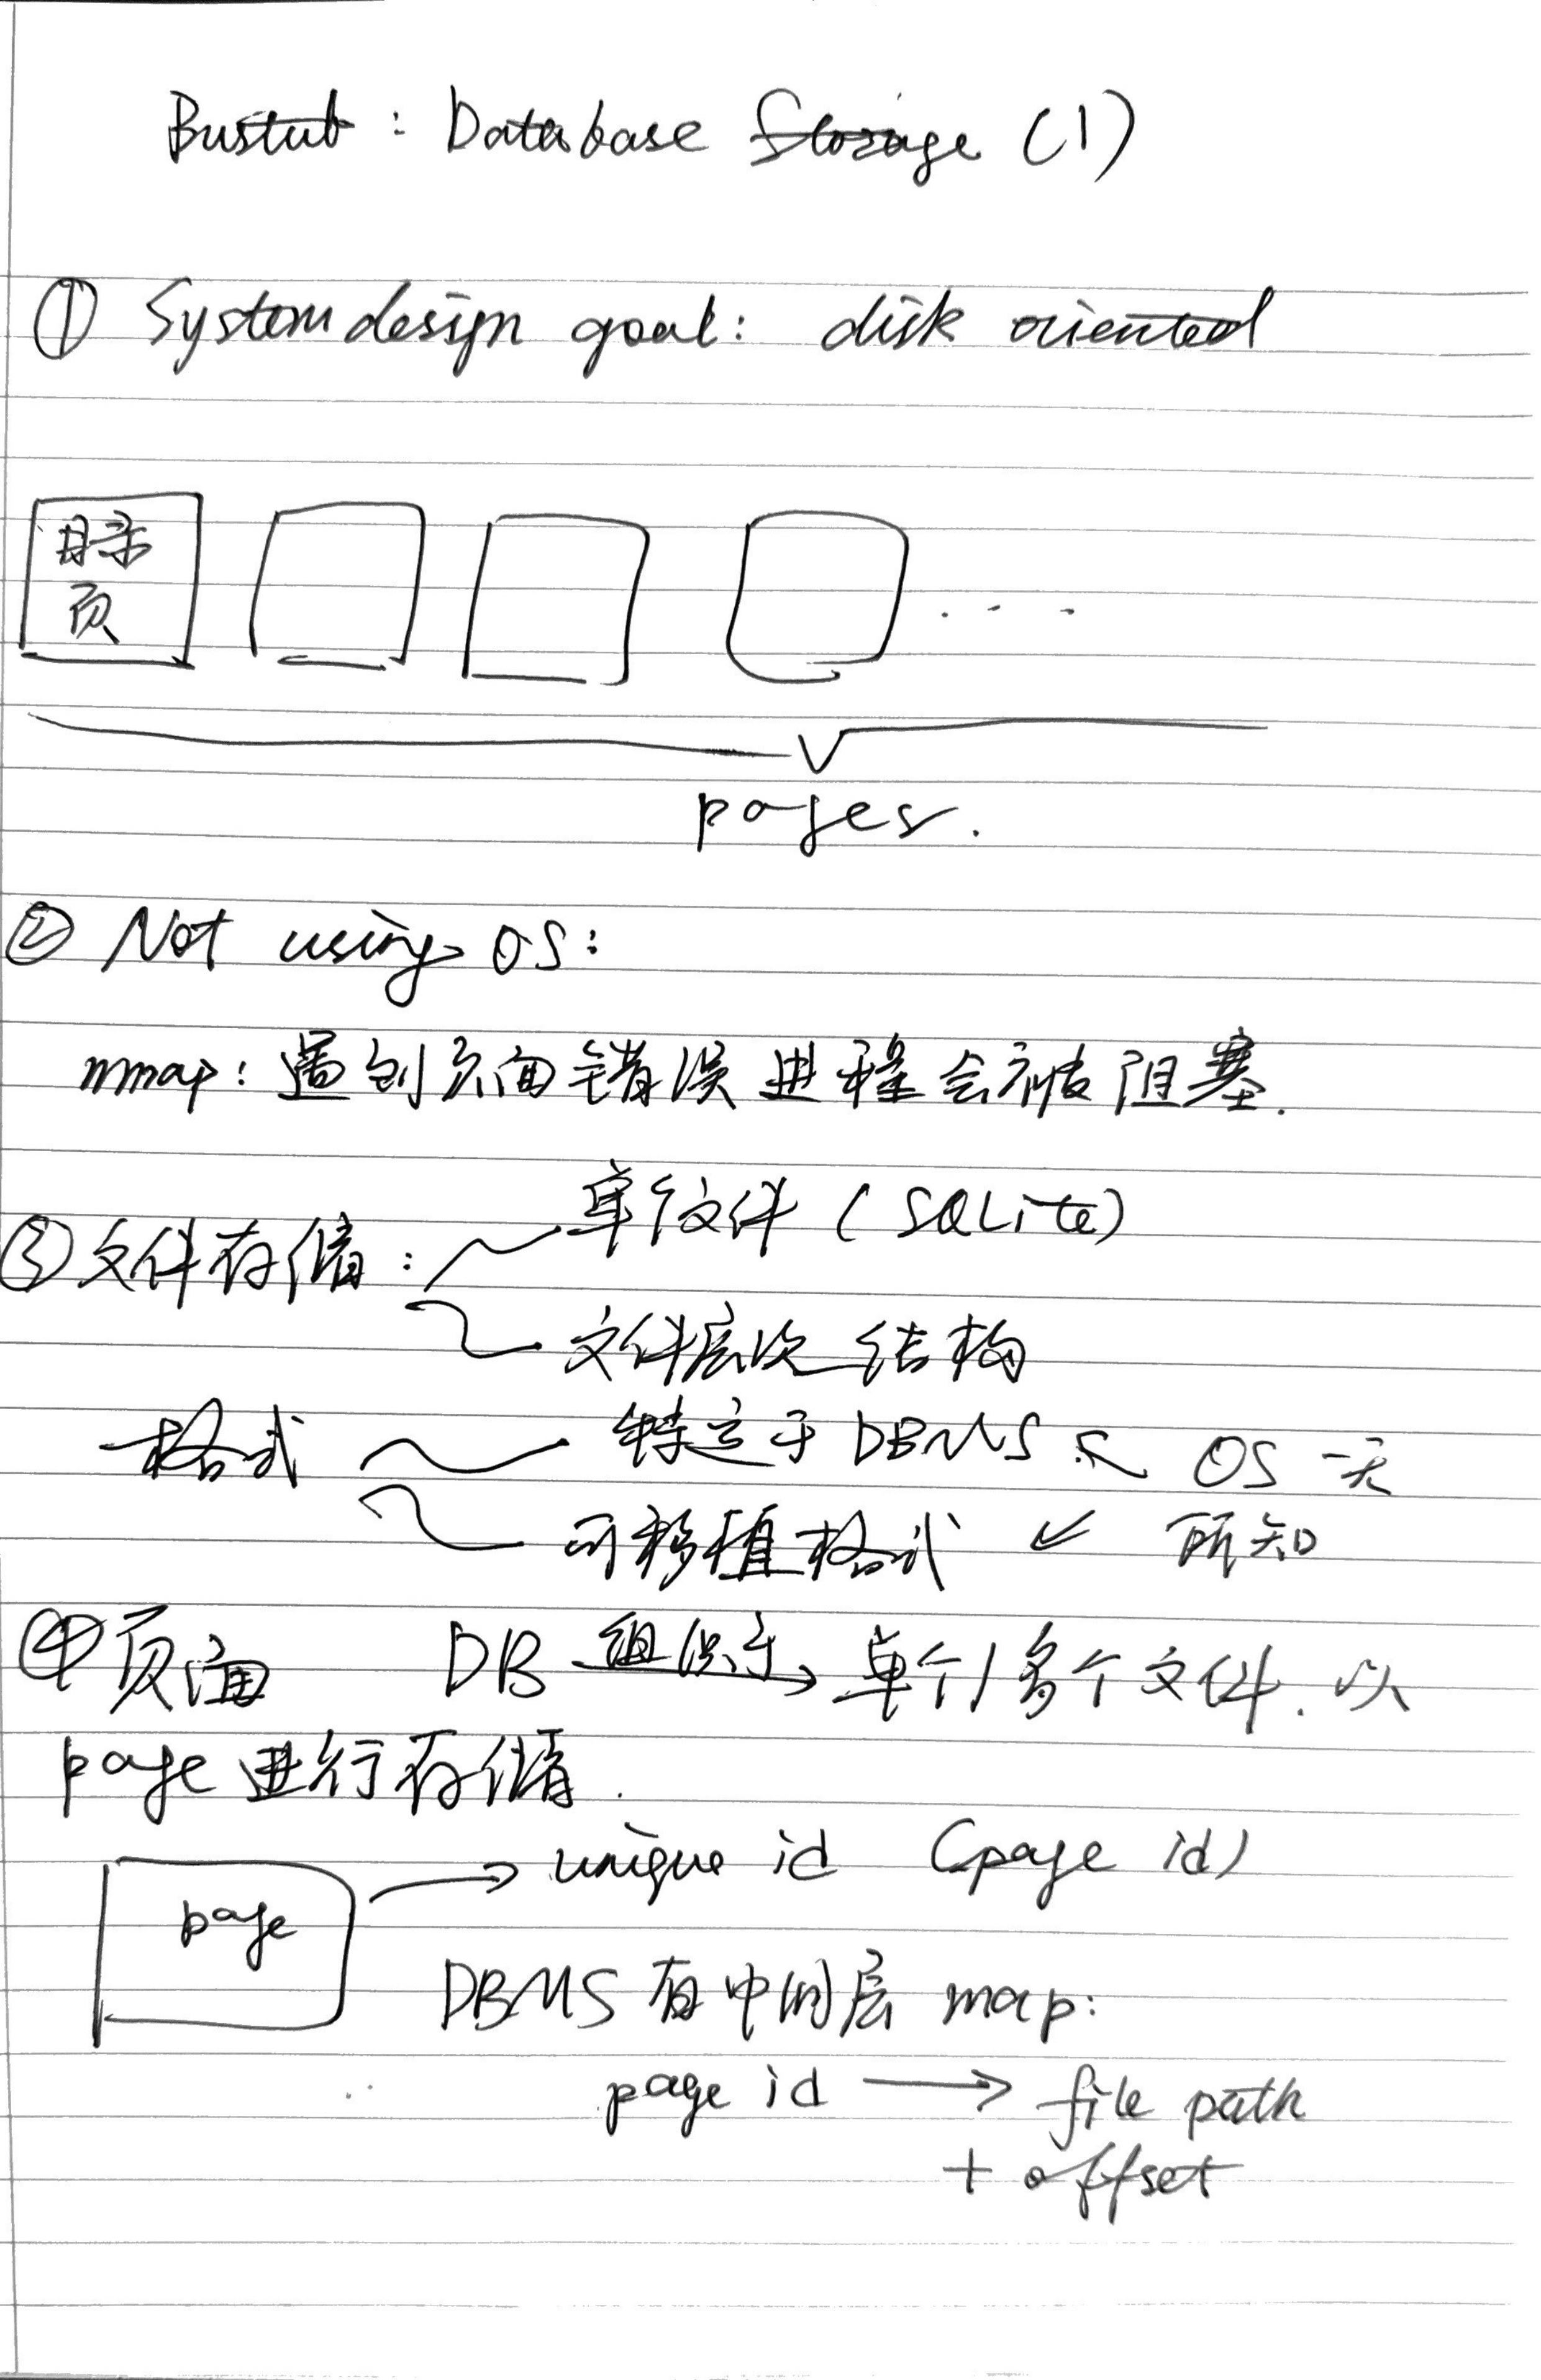 Bustub : Database Storage (1)
① System design goal: disk oriented
目录
页
. . . .
pages.
② Not using OS:
mmap: 遇到页面错误 进程会被阻塞.
③ 文件存储 : 单个文件 (SQLite)
文件层次结构
格式 特定于 DBMS OS 一无
可移植格式 ↙ 所知
④ 页面 DB 组织于→ 单个/多个文件. 以
page 进行存储.
page → unique id (page id)
DBMS 有中间层 map:
page id → file path
+ offset